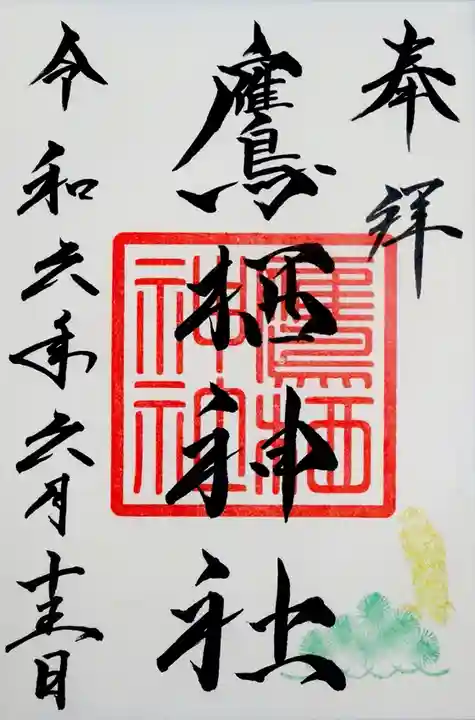 奉拝
鷹栖神社
鷹栖神社
令和六年六月十五日